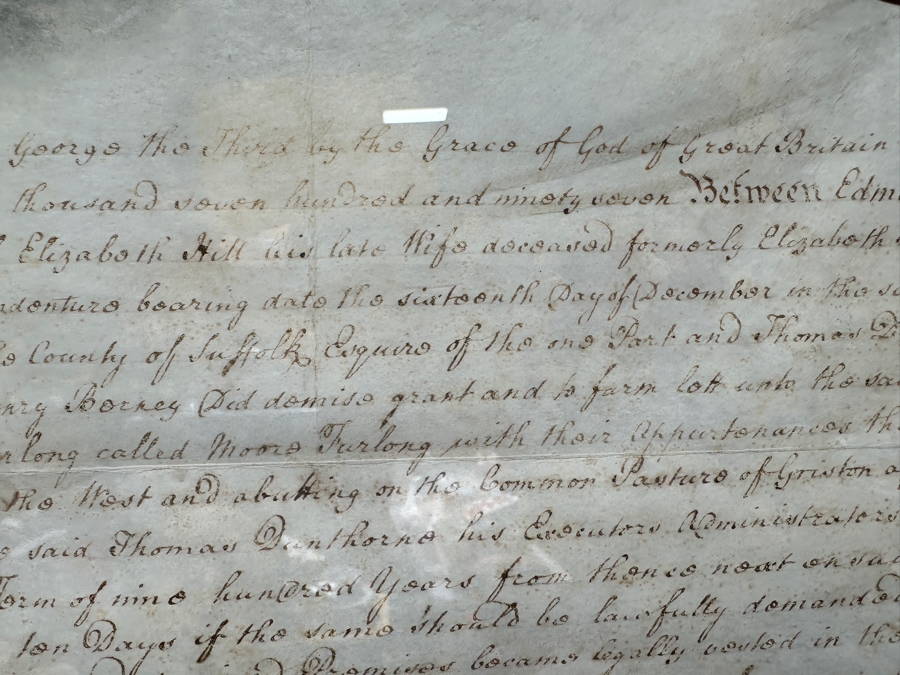 George the Third by the Grace of God of Great Britain
thousand seven hundred and ninety seven Between Edm
Elizabeth Hill his late Wife deceased formerly Elizabeth
ndenture bearing date the sixteenth Day of December in the
County of Suffolk Esquire of the one Part and Thomas D
nry Berney Did demise grant and to farm lett unto the sai
rlong called Moore Furlong with their Appurtenances th
the West and abutting on the Common Pasture of Griston a
said Thomas Dunthorne his Executors Administrators
Term of nine hundred Years from thence next ensu
ten Days if the same should be lawfully demanded
Premises became legally vested in the